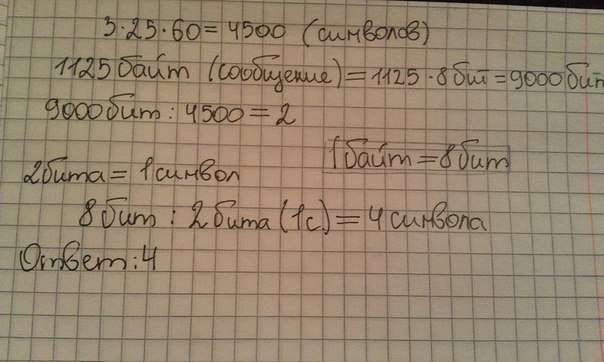 3·25·60=4500 (символов)
1125 байт (сообщение)=1125·8бит=9000бит
9000бит:4500=2
1байт=8бит
2бита=1символ
8бит:2бита(1с)=4символа
Ответ:4